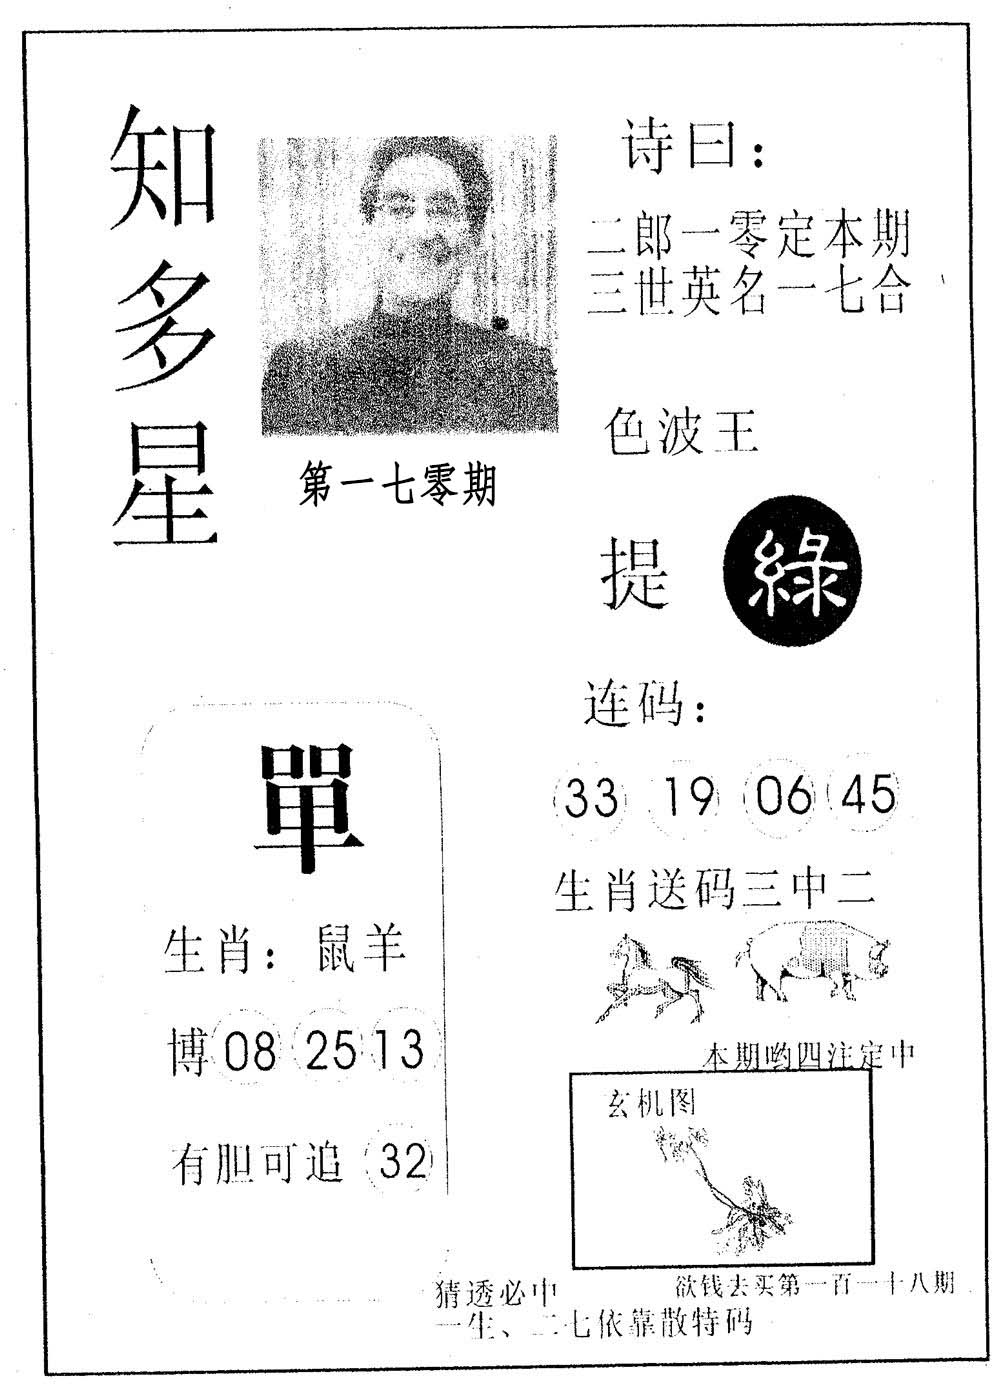 知多星
第一七零期
诗曰：
二郎一零定本期
三世英名一七合
色波王
提 綠
连码：
33 19 06 45
生肖送码三中二
本期哟四注定中
玄机图
單
生肖：鼠羊
博 08 25 13
有胆可追 32
猜透必中
欲钱去买第一百一十八期
一生、二七依靠散特码